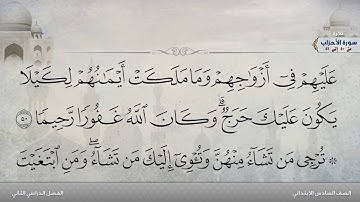 سورة الأحزاب
عَلَيْهِمْ فِىٓ أَزْوَٰجِهِمْ وَمَا مَلَكَتْ أَيْمَٰنُهُمْ لِكَيْلَا
يَكُونَ عَلَيْكَ حَرَجٌۗ وَكَانَ ٱللَّهُ غَفُورًا رَّحِيمًا ٥٠
۞ تُرْجِى مَن تَشَآءُ مِنْهُنَّ وَتُـْٔوِىٓ إِلَيْكَ مَن تَشَآءُۖ وَمَنِ ٱبْتَغَيْتَ
الصف السادس الابتدائي
الفصل الدراسي الثاني